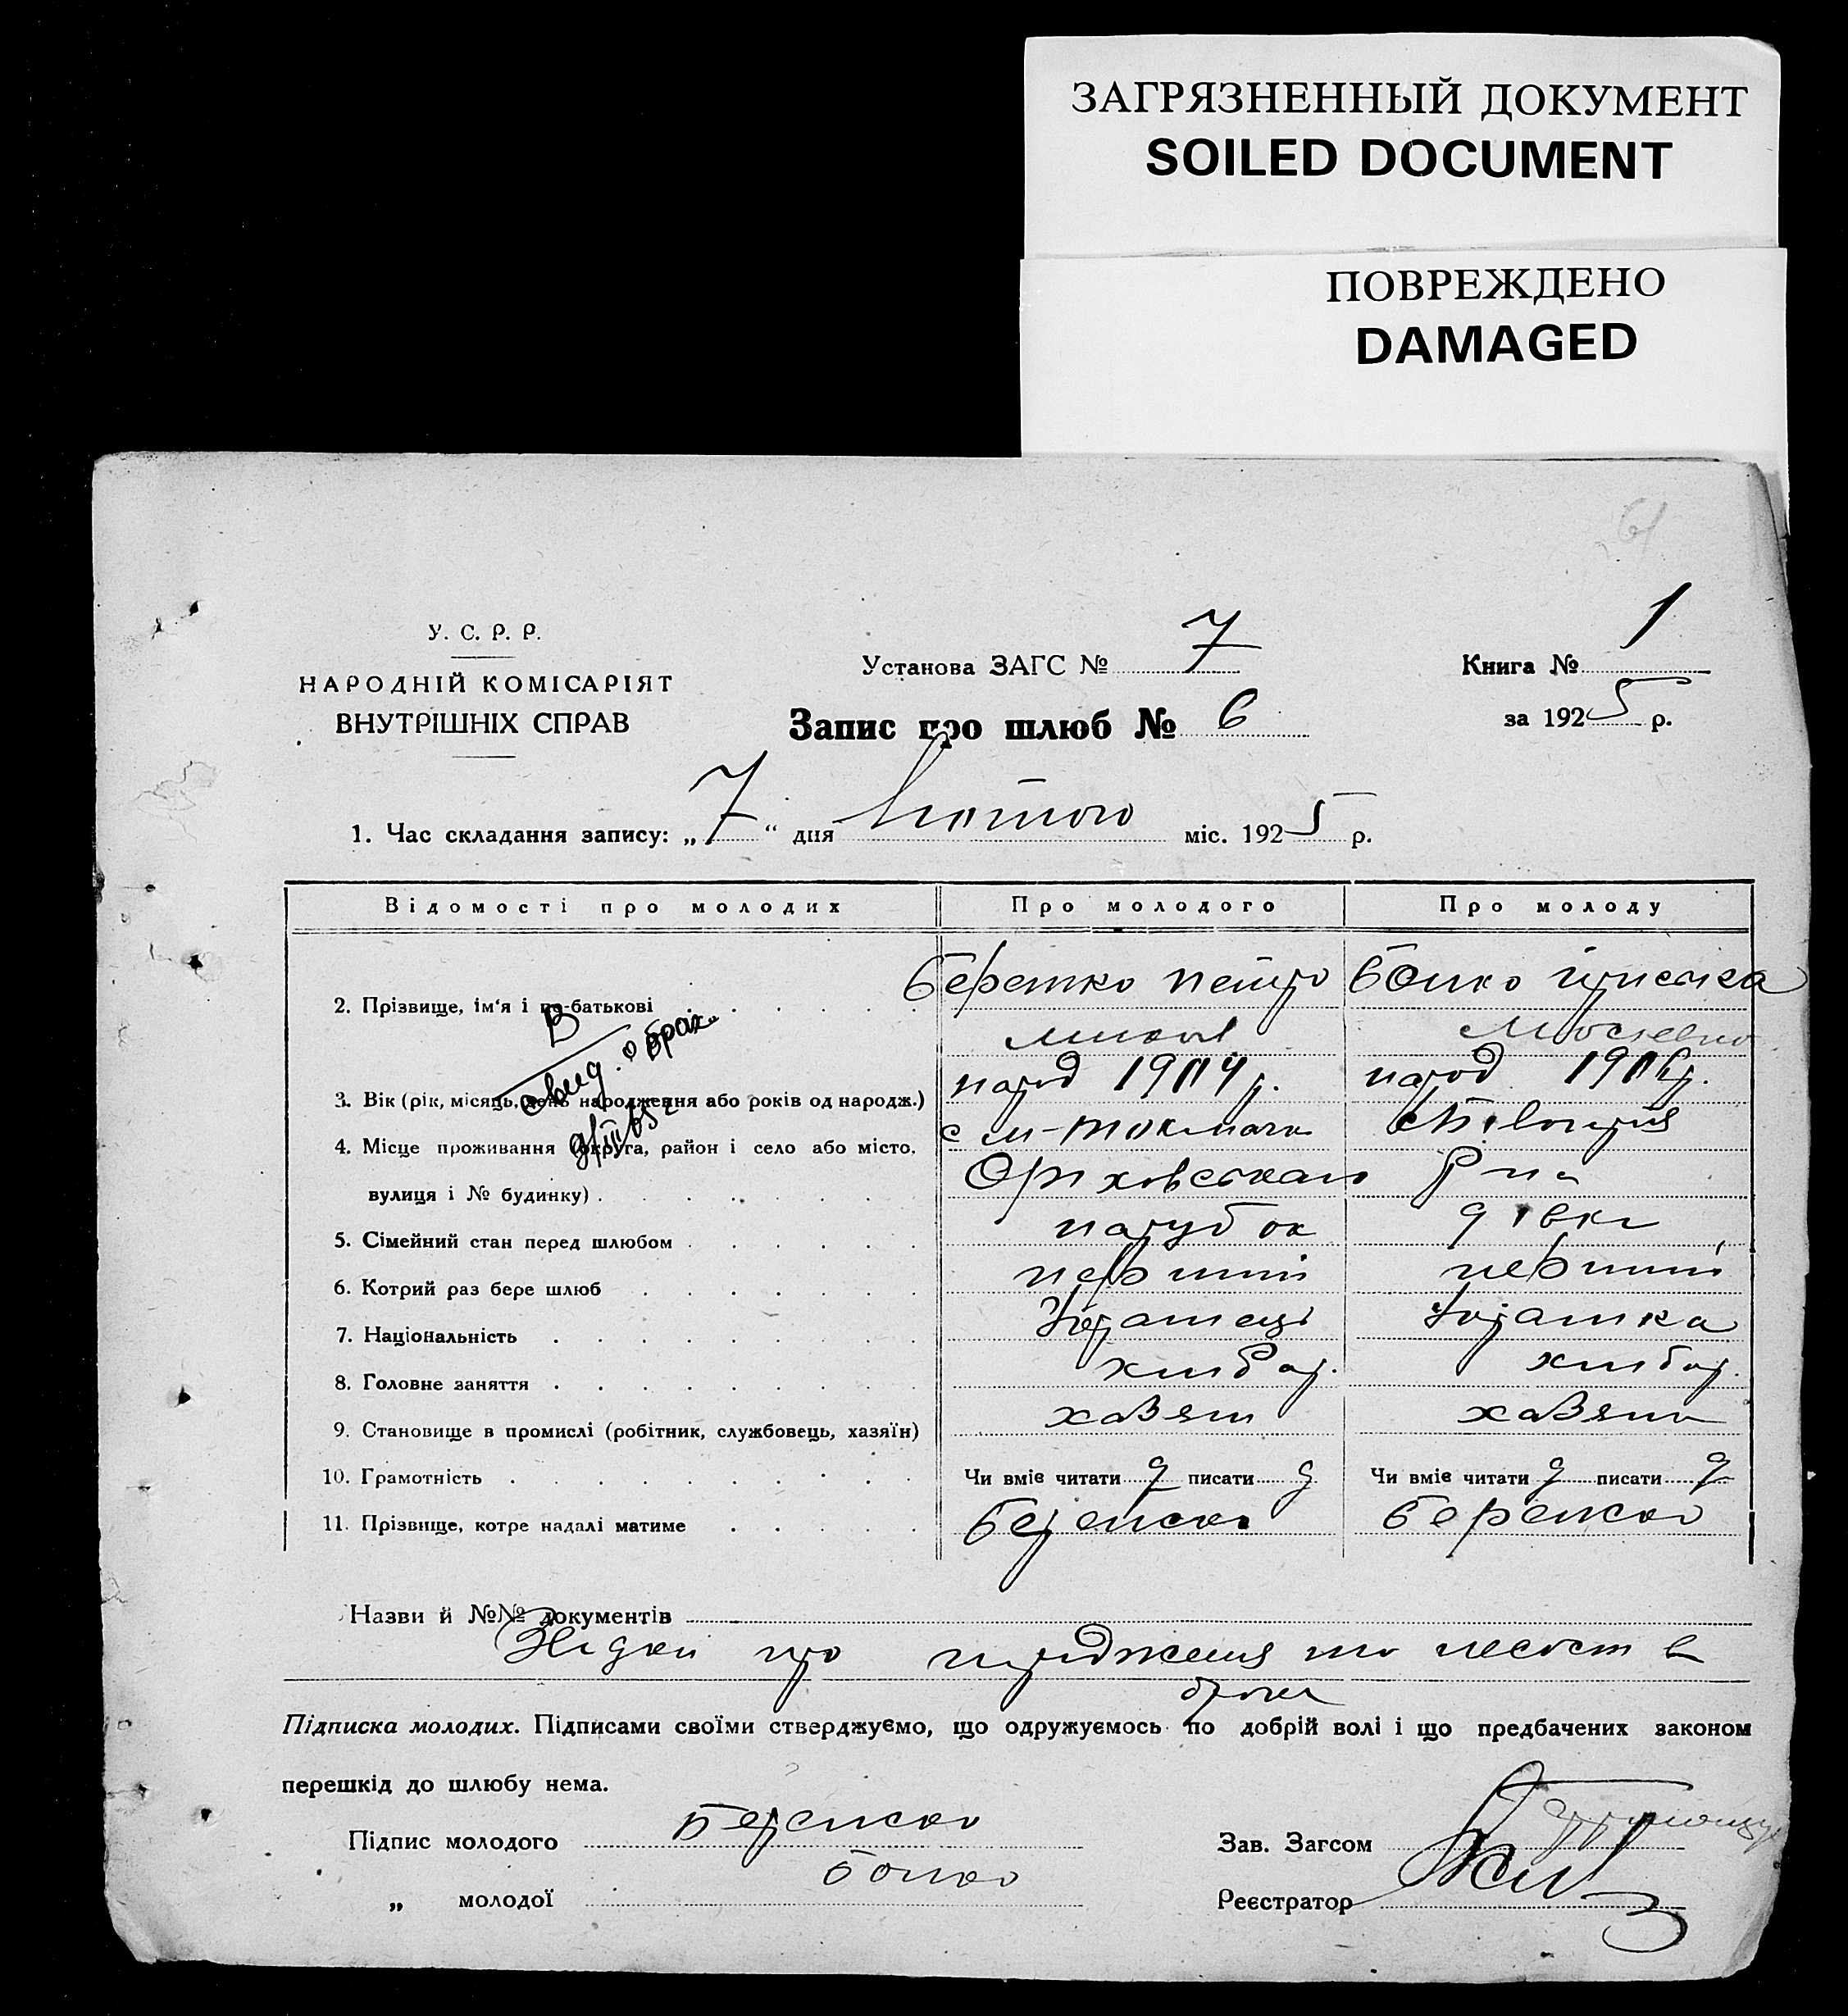 ЗАГРЯЗНЕННЫЙ ДОКУМЕНТ
SOILED DOCUMENT
ПОВРЕЖДЕНО
DAMAGED
61
У. С. Р. Р.
НАРОДНІЙ КОМІСАРІЯТ
ВНУТРІШНІХ СПРАВ
Установа ЗАГС № 7
Книга № 1
Запис про шлюб № 6
за 1925 р.
1. Час складання запису: „7“ дня Лютого міс. 1925 р.
Відомості про молодих Про молодого Про молоду
2. Прізвище, ім'я і по-батькові Бережко Петро Бойко
3. Вік (рік, місяць, день народження або років од народж.) народ 1904 р. народ 1906 р.
4. Місце проживання (округа, район і село або місто, с м-токмачк
вулиця і № будинку) Оріховського Р-на
5. Сімейний стан перед шлюбом парубок дівка
6. Котрий раз бере шлюб перший перший
7. Національність Українець Українка
8. Головне заняття хлібор. хлібор.
9. Становище в промислі (робітник, службовець, хазяїн) хазяїн
10. Грамотність Чи вміє читати писати Чи вміє читати писати
11. Прізвище, котре надалі матиме Бережко Бережко
В
свид. о брак.
9/III 65 г
Назви й №№ документів
про народження та
Підписка молодих. Підписами своїми стверджуємо, що одружуємось по добрій волі і що предбачених законом
перешкід до шлюбу нема.
Підпис молодого Бережко
Зав. Загсом
„ молодої Бойко
Реєстратор